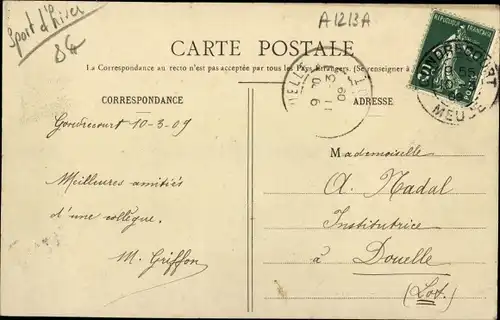 Sport d'hiver
A1213A
CARTE POSTALE
RÉPUBLIQUE FRANÇAISE
GONDRECOURT
MEUSE
La Correspondance au recto n'est pas acceptée par tous les Pays Étrangers. (Se renseigner à
CORRESPONDANCE
ADRESSE
Gondrecourt 10-3-09
Meilleures amitiés
d'une collègue.
M. Griffon
Mademoiselle
A. Nadal
Institutrice
à Douelle
(Lot)